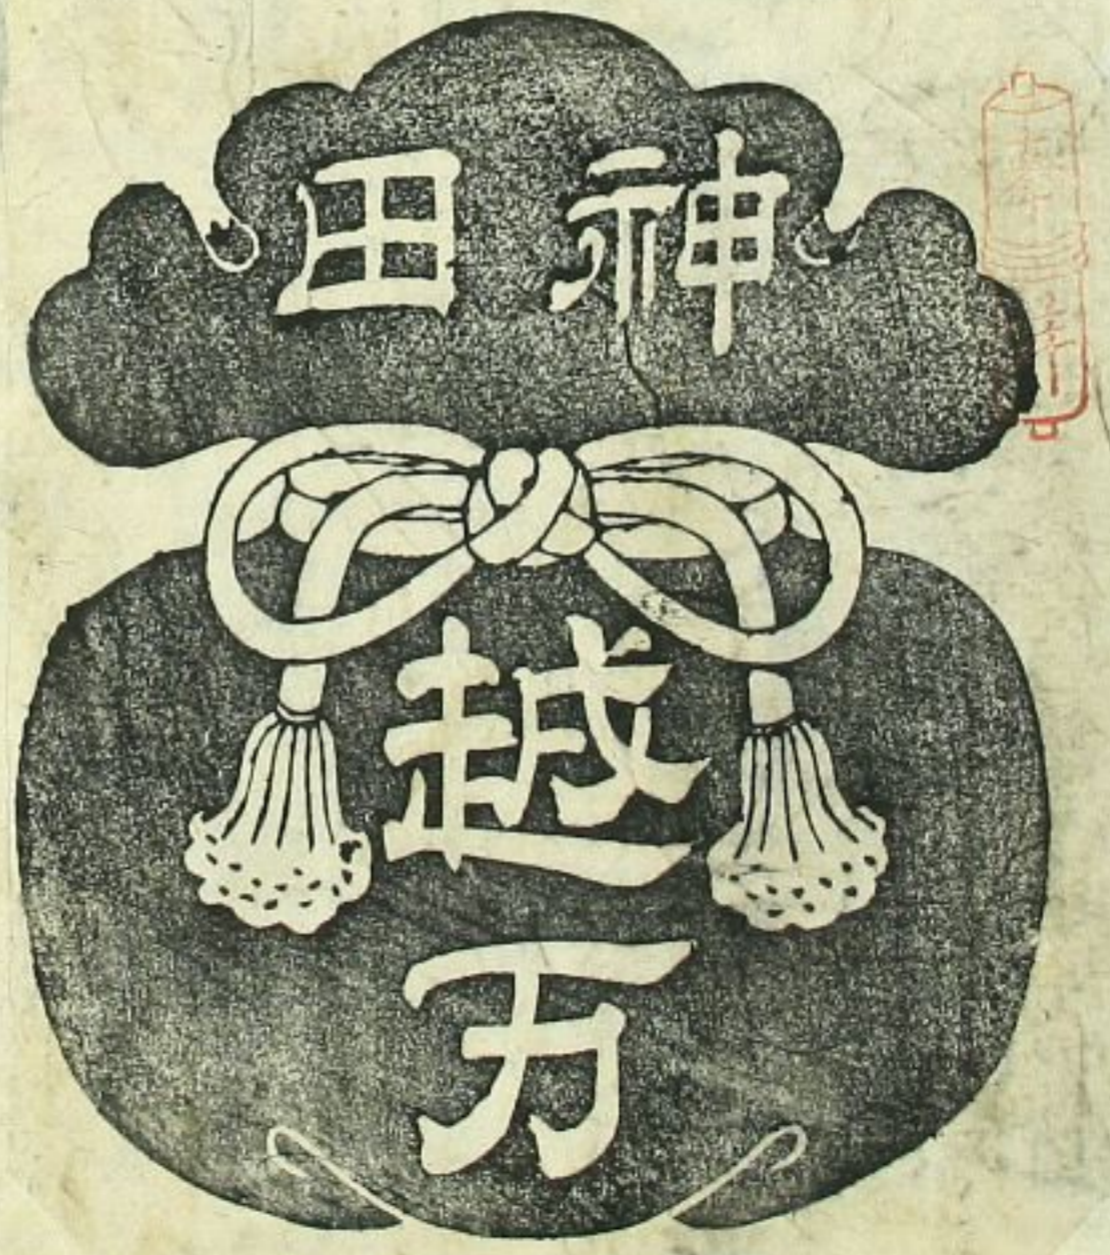 神田
越万